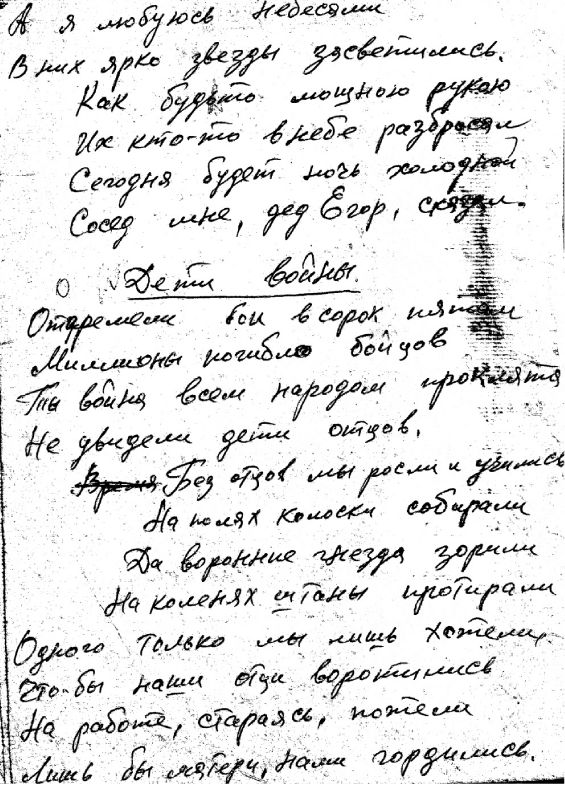 А я любуюсь небесами
В них ярко звезды засветились.
Как будьто мощною рукаю
Их кто-то в небе разбросал
Сегодня будет ночь холодной
Сосед мне, дед Егор, сказал.
Дети войны
Отгремели бои в сорок пятом
Миллионы погибло бойцов
Ты война всем народом проклята
Не увидели дети отцов.
Без отцов мы росли и учились
На полях колоски собирали
Да воронние гнезда зорили
На коленях штаны протирали
Одного только мы лишь хотели,
Что-бы наши отцы воротились
На работе, стараясь, потели
Лишь бы матери, нами гордились.